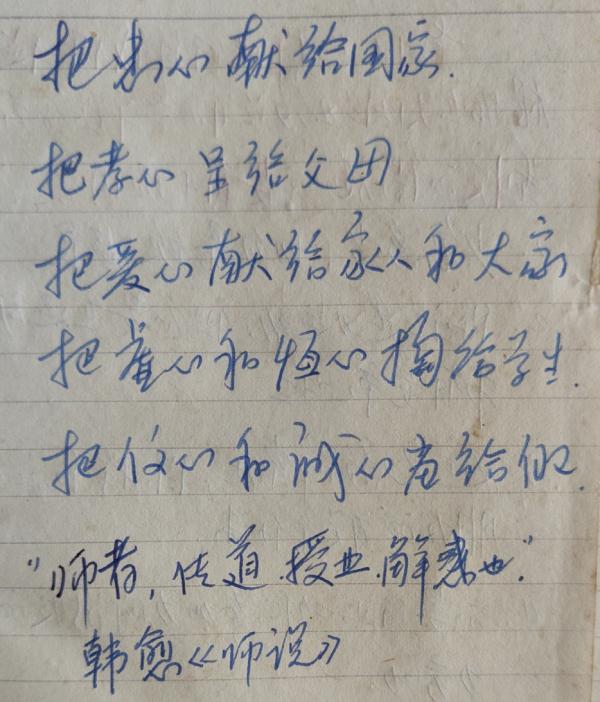 把心献给国家.
把孝心呈给父母
把爱心献给家人和大家
把心和恒心掏给学生.
把心和诚心给.
"师者,传道.授业.解惑也."
韩愈《师说》